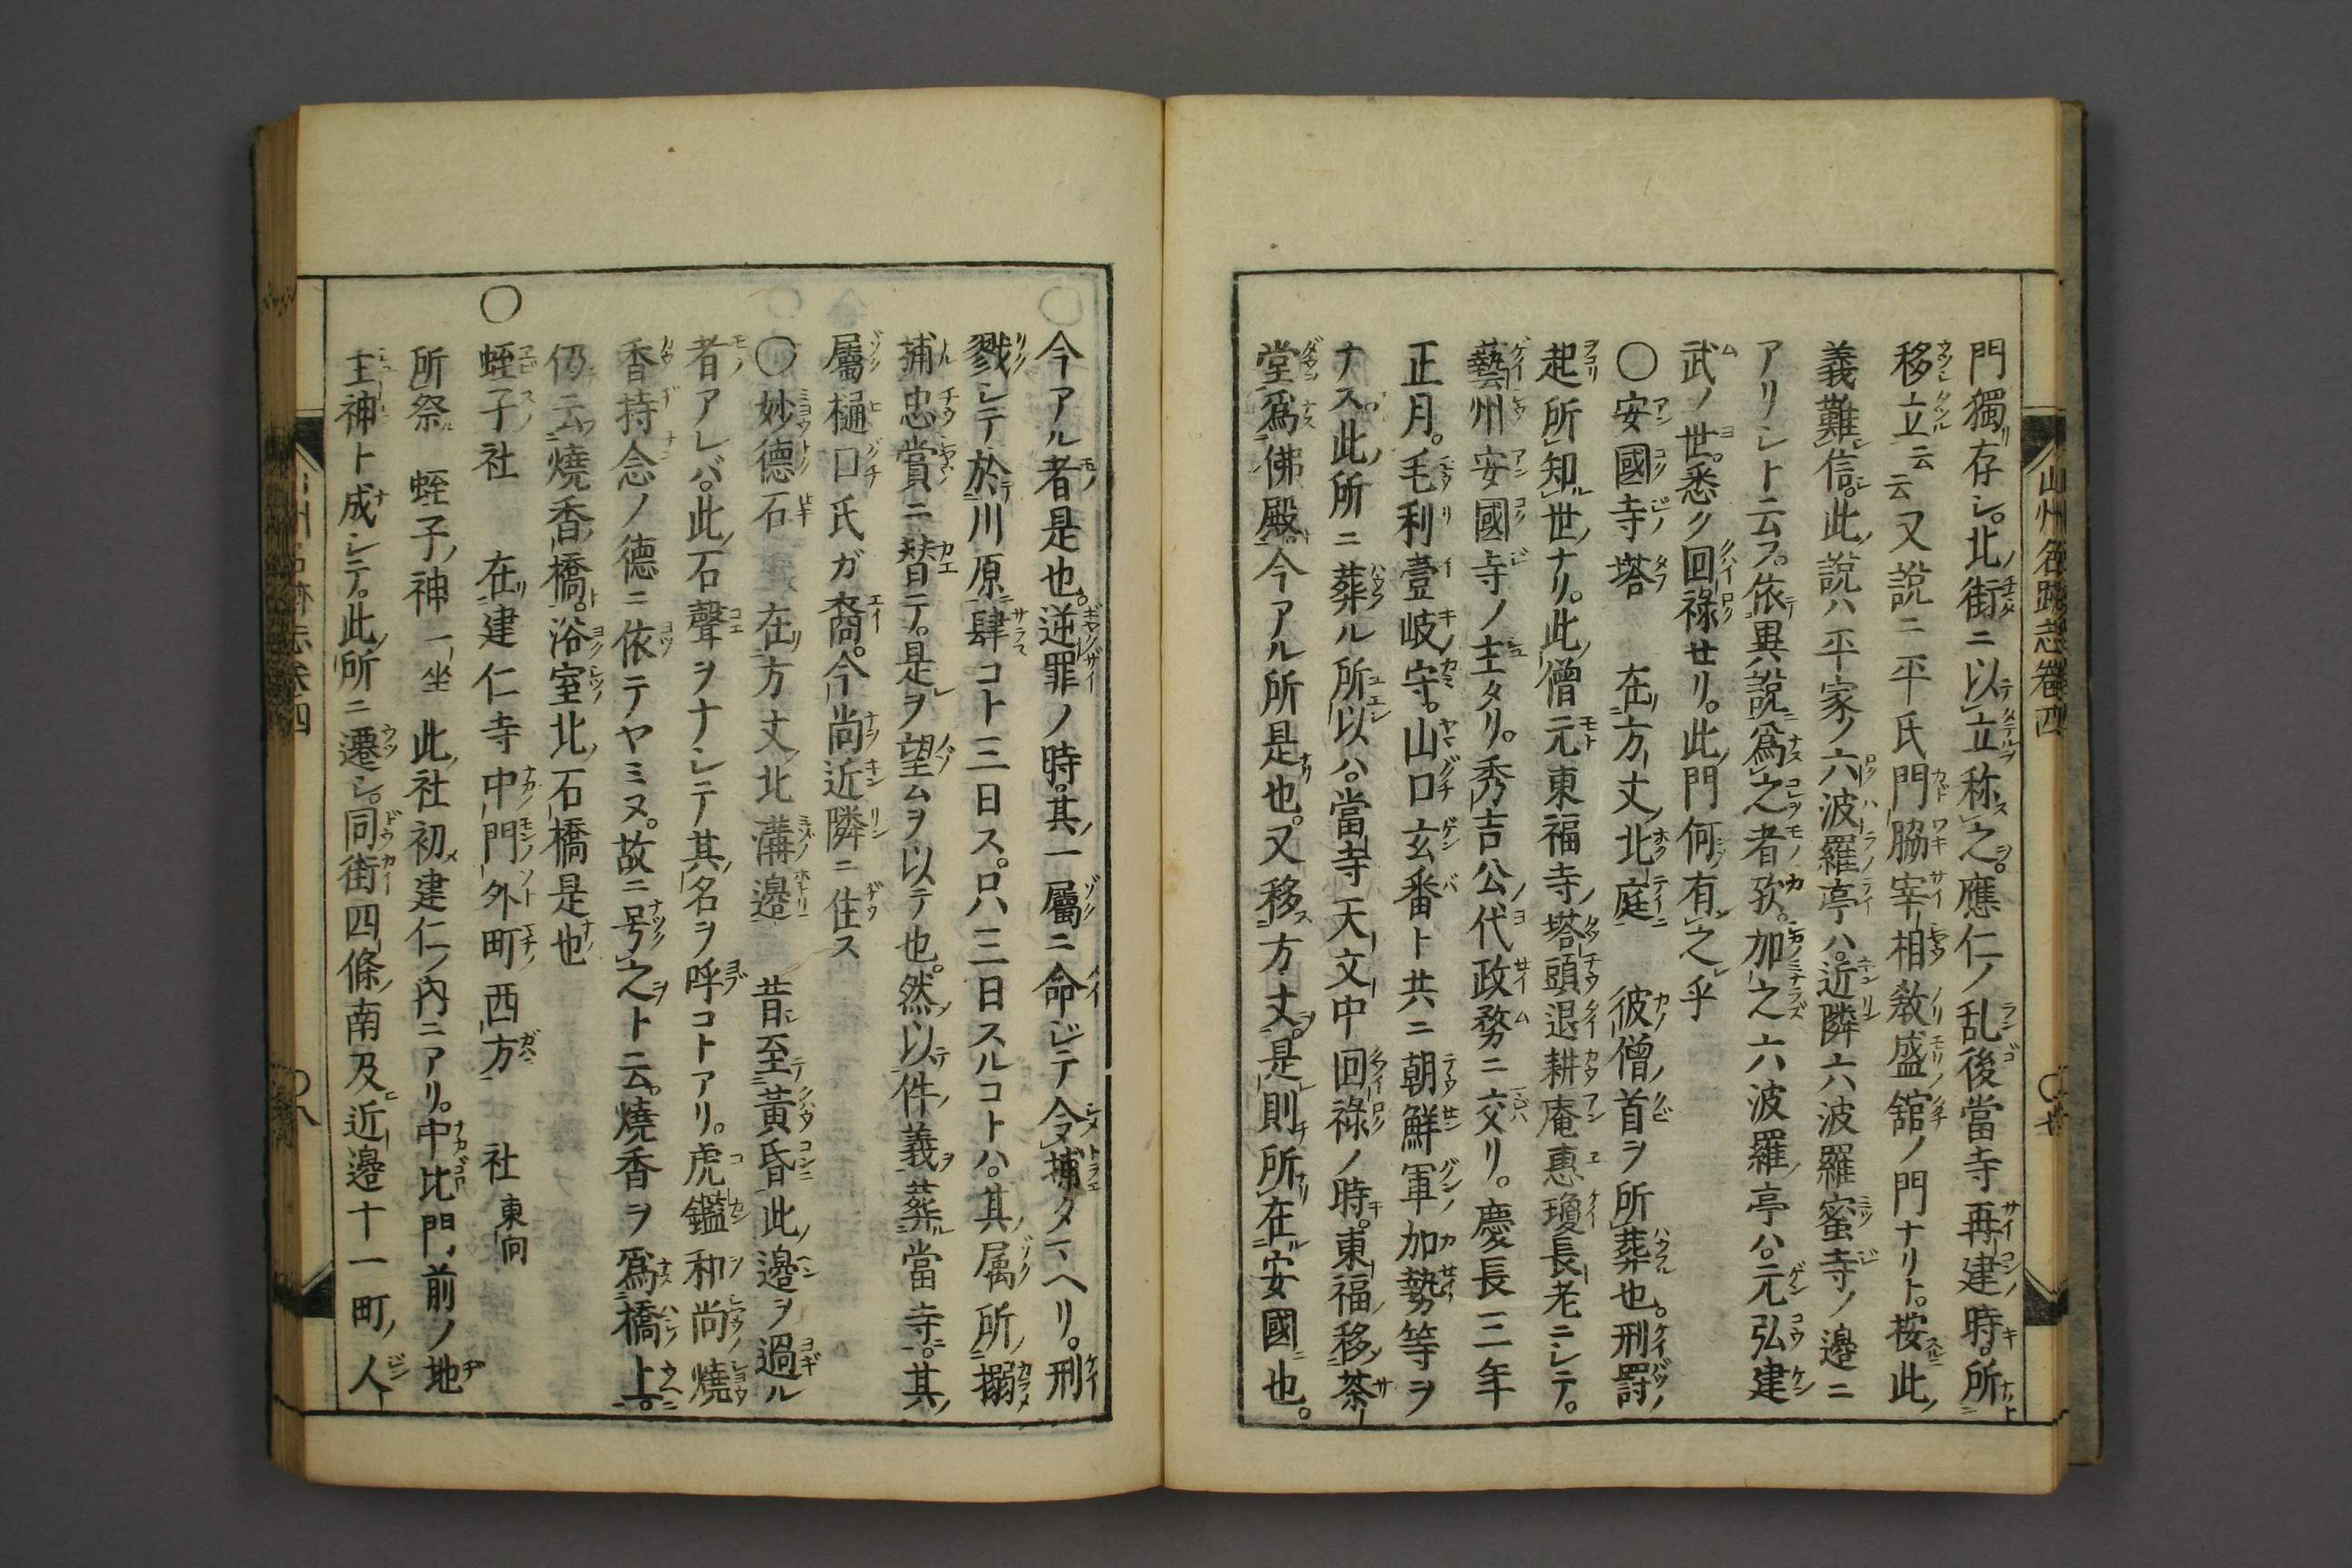 山州名跡志卷四
門獨存シ。北ノ街ニ以立称之。應仁ノ乱後當寺再建ノ時。所
移立云云又說ニ平氏門脇宰相教盛舘ノ門ナリト。按此ノ
義難信。此ノ說ハ平家ノ六波羅亭ハ。近隣六波羅蜜寺ノ邊ニ
アリシト云フ。依異說爲之者歟。加之六波羅ノ亭ハ。元弘建
武ノ世。悉ク回祿セリ。此門何有之乎
〇安國寺塔 在方丈北庭 彼僧ノ首ヲ所葬也。刑罸ノ
起所知世ナリ。此僧元東福寺ノ塔頭退耕庵惠瓊長老ニシテ。
藝州安國寺ノ主タリ。秀吉公ノ代政務ニ交リ。慶長三年
正月。毛利壹岐守。山口玄番ト共ニ朝鮮軍ノ加勢等ヲ
ナス。此所ニ葬ル所以ハ。當寺天文中回祿ノ時。東福ノ移茶
堂爲佛殿。今アル所是也。又移方丈。是則所在安國也。
今アル者是也。逆罪ノ時。其ノ一屬ニ命ジテ令捕タマヘリ。刑
戮シテ於川原肆コト三日ス。只三日スルコトハ。其ノ属所ノ搦
捕忠賞ニ替テ。是ヲ望ムヲ以テ也。然以件ノ義葬當寺。其ノ
屬樋口氏ガ裔。今尚近隣ニ住ス
〇妙德石 在方丈北溝邊 昔至黃昏此ノ邊ヲ過ル
者アレバ。此ノ石聲ヲナシテ其ノ名ヲ呼コトアリ。虎鑑和尚燒
香持念ノ德ニ依テヤミヌ。故ニ号之ト云。燒香ヲ爲橋上。
仍云燒香橋。浴室北ノ石橋是也
〇蛭子社 在建仁寺中門外町西方 社東向
所祭 蛭子ノ神一坐 此ノ社初メ建仁ノ內ニアリ。中比門前ノ地
主神ト成シテ。此所ニ遷シ。同街四條ノ南及近邊十一町ノ人